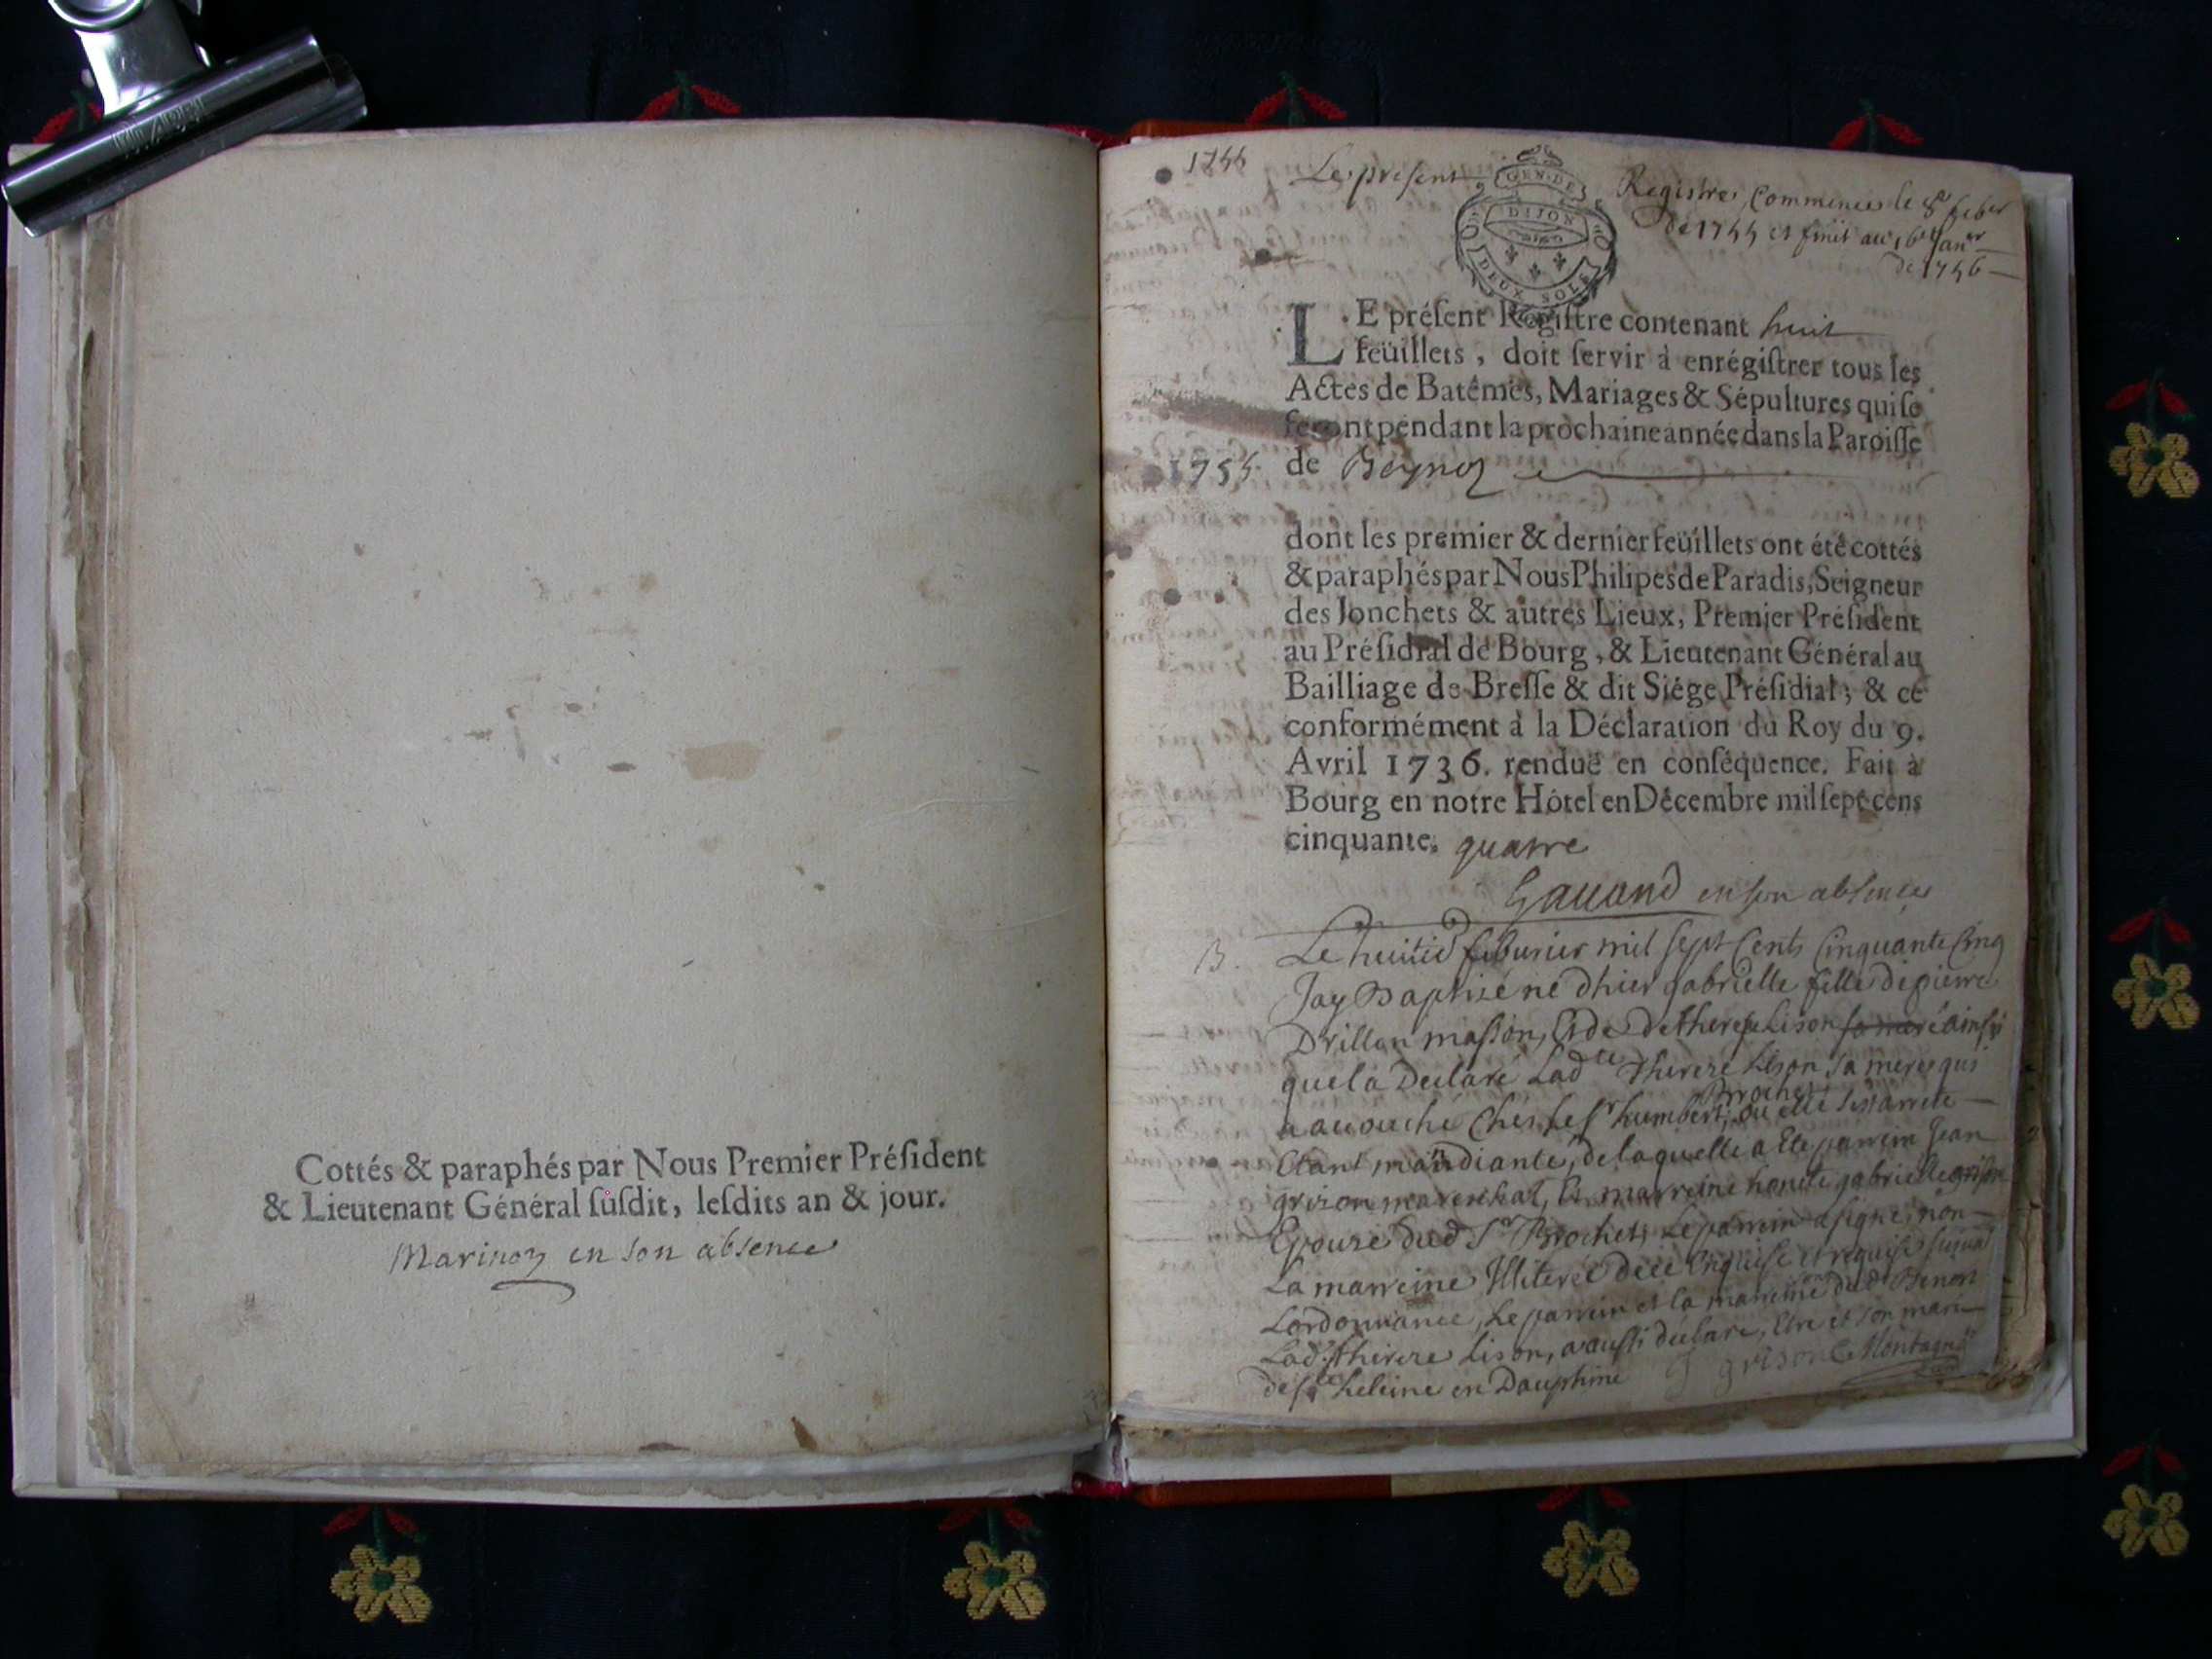 Cottés & paraphés par Nous Premier Préſident
& Lieutenant Général ſuſdit, leſdits an & jour.
Marinon en son absence
1755
Le present
GEN·DE
DIJON
DEUX SOLS
Registre, Commencer le 8e feber
de 1755 et finit au 16e Janer
de 1756
LE préſent Regiſtre contenant huit
feüillets, doit ſervir à enrégiſtrer tous les
Actes de Batêmes, Mariages & Sépultures qui ſe
feront pendant la prochaine année dans la Paroiſſe
1755 de Beynoz
dont les premier & dernier feüillets ont été cottés
& paraphés par Nous Philipes de Paradis, Seigneur
des Jonchets & autres Lieux, Premier Préſident
au Préſidial de Bourg, & Lieutenant Général au
Bailliage de Breſſe & dit Siége Préſidial; & ce
conformément à la Déclaration du Roy du 9.
Avril 1736. renduë en conſéquence. Fait à
Bourg en notre Hôtel en Décembre mil ſept cens
cinquante. quatre
Gauand en son absence
B. Le huitie feburier mil sept Cents Cinquante Cinq
Jay Baptizé né dhier gabrielle fille de pierre
Drillon masson, Et de De therese Lison sa mere ainsy
que la Declaré Lad te Therese Lison sa mere qui
a acouché Ches le sr humbert Brochet, ou elle sest arreté
Etant mandiante, de laquelle a Ete parrein Jean
grizon marechal, Et marreine honete gabrielle grison
Epouze dud Sr Brochet, Le parrein a signé, non
La marreine Illiterée de ce Enquise et requise suivat
Lordonnance, Le parrein et la marreine
Lad. therese Lison, a aussi declaré, Etre et son mari
de ste heleine en Dauphiné J grison Montagne